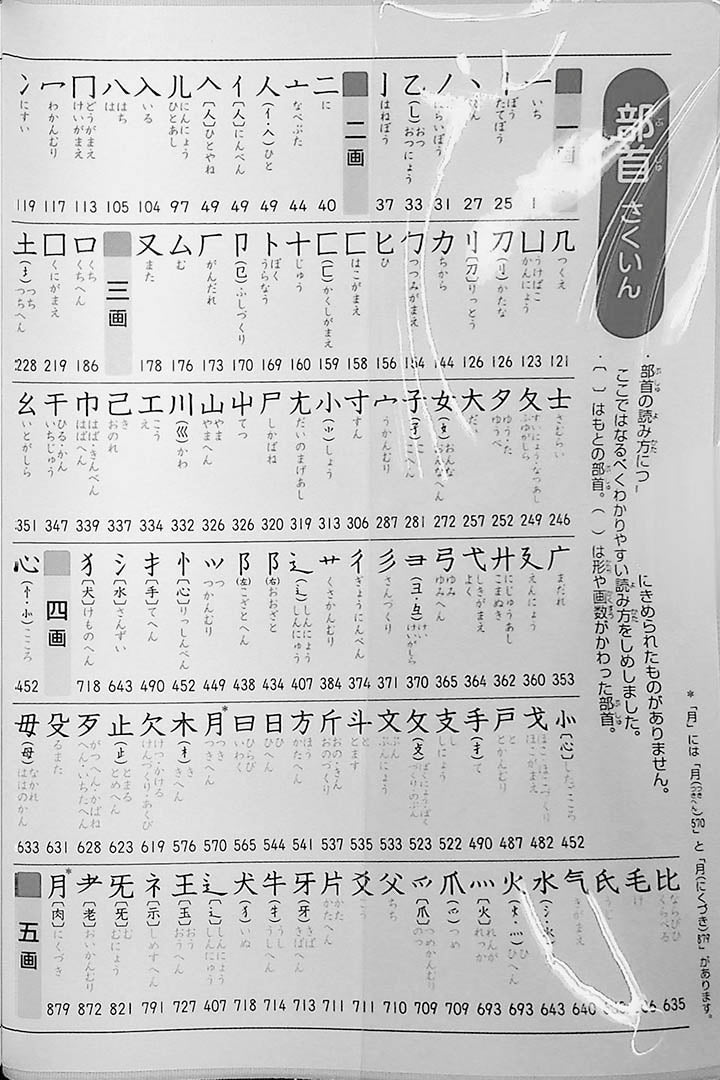 部首さくいん
・部首の読み方につ
にきめられたものがありません。
ここではなるべくわかりやすい読み方をしめしました。
・〔 〕はもとの部首。( )は形や画数がかわった部首。
*「月」には「月(つきへん)570」と「月(にくづき)879」があります。
一画
一 いち 1
丨 ぼう たてぼう 25
丶 27
ノ 31
乙(乚) おつ おつにょう 33
亅 はねぼう 37
二画
二 に 40
亠 なべぶた 44
人(亻・人) ひと 49
亻〔人〕にんべん 49
𠆢〔人〕ひとやね 49
儿 にんにょう ひとあし 97
入 いる 104
八 はち は 105
冂 どうがまえ けいがまえ 113
冖 わかんむり 117
冫 にすい 119
几 つくえ 121
凵 うけばこ かんにょう 123
刀(刂) かたな 126
刂〔刀〕りっとう 126
力 ちから 144
勹 つつみがまえ 154
匕 ひ 156
匚 はこがまえ 158
匸(匚) かくしがまえ 159
十 じゅう 160
卜 ぼく うらなう 169
卩(㔾) ふしづくり 170
厂 がんだれ 173
厶 む 176
又 また 178
三画
口 くち くちへん 186
囗 くにがまえ 219
土(扌) つち つちへん 228
士 さむらい 246
夂 すいにょう・なつあし ふゆがしら 249
夕 ゆうた ゆうべ 252
大 だい 257
女(女) おんな おんなへん 272
子(孑) こ こへん 281
宀 うかんむり 287
寸 すん 306
小(⺌) しょう 313
尢 だいのまげあし 319
尸 しかばね 320
屮 てつ 326
山 やま やまへん 326
川(巛) かわ 332
工 え こう 334
己 き おのれ 337
巾 はば・きんべん はばへん 339
干 ひる・かん いちじゅう 347
幺 いとがしら 351
广 まだれ 353
廴 えんにょう 360
廾 にじゅうあし こまぬき 362
弋 しきがまえ よく 364
弓 ゆみ ゆみへん 365
ヨ(彑・彐) けい けいがしら 370
彡 さんづくり 371
彳 ぎょうにんべん 374
艹 くさかんむり 384
辶(辶) しんにょう しんにゅう 407
阝(右) おおざと 434
阝(左) こざとへん 438
⺍ つかんむり 449
忄〔心〕りっしんべん 452
扌〔手〕てへん 490
氵〔水〕さんずい 643
犭〔犬〕けものへん 718
四画
心(忄・⺗) こころ 452
⺗〔心〕したごころ 452
戈 ほこ・ほこづくり ほこがまえ 482
戸 と とかんむり 487
手(扌) て 490
支 し しにょう 522
攵(攴) ぼくにょう・ぼく づくり・のぶん 523
文 ぶん ぶんにょう 533
斗 と とます 535
斤 おの・きん おのづくり 537
方 ほう かたへん 541
日 ひ ひへん 544
曰 ひらび いわく 565
月* つき つきへん 570
木(朩) き きへん 576
欠 けつ・かける けんづくり・あくび 619
止(止) とまる とめへん 623
歹 がつへん・かばね へん・いちたへん 628
殳 るまた 631
毋(母) なかれ ははのかん 633
比 ならびひ くらべる 635
毛 け
氏 うじ
气 きがまえ 640
水 643
火(灬) ひ ひへん 693
灬〔火〕れんが れっか 693
爪(爫) つめ 709
爫〔爪〕つめかんむり のつ 709
父 ちち 710
爻 こう 711
片 かた かたへん 711
牙(牙) きば きばへん 713
牛(牜) うし うしへん 714
犬(犭) いぬ 718
辶〔辶〕しんにょう しんにゅう 407
王〔玉〕おう おうへん 727
礻〔示〕しめすへん 791
旡〔无〕むにょう 821
耂〔老〕おいかんむり 872
月*〔肉〕にくづき 879
五画